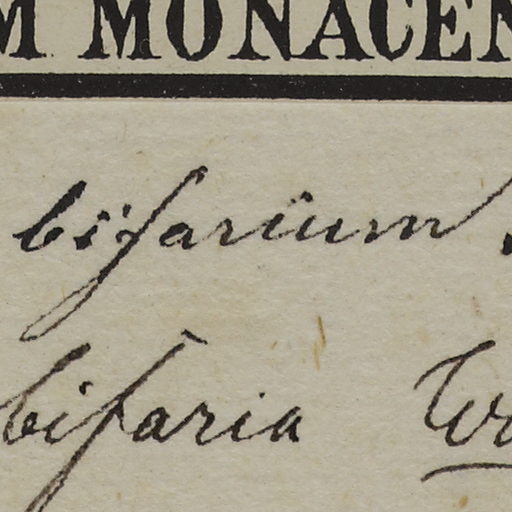 M MONACEN
bifarium
bifaria